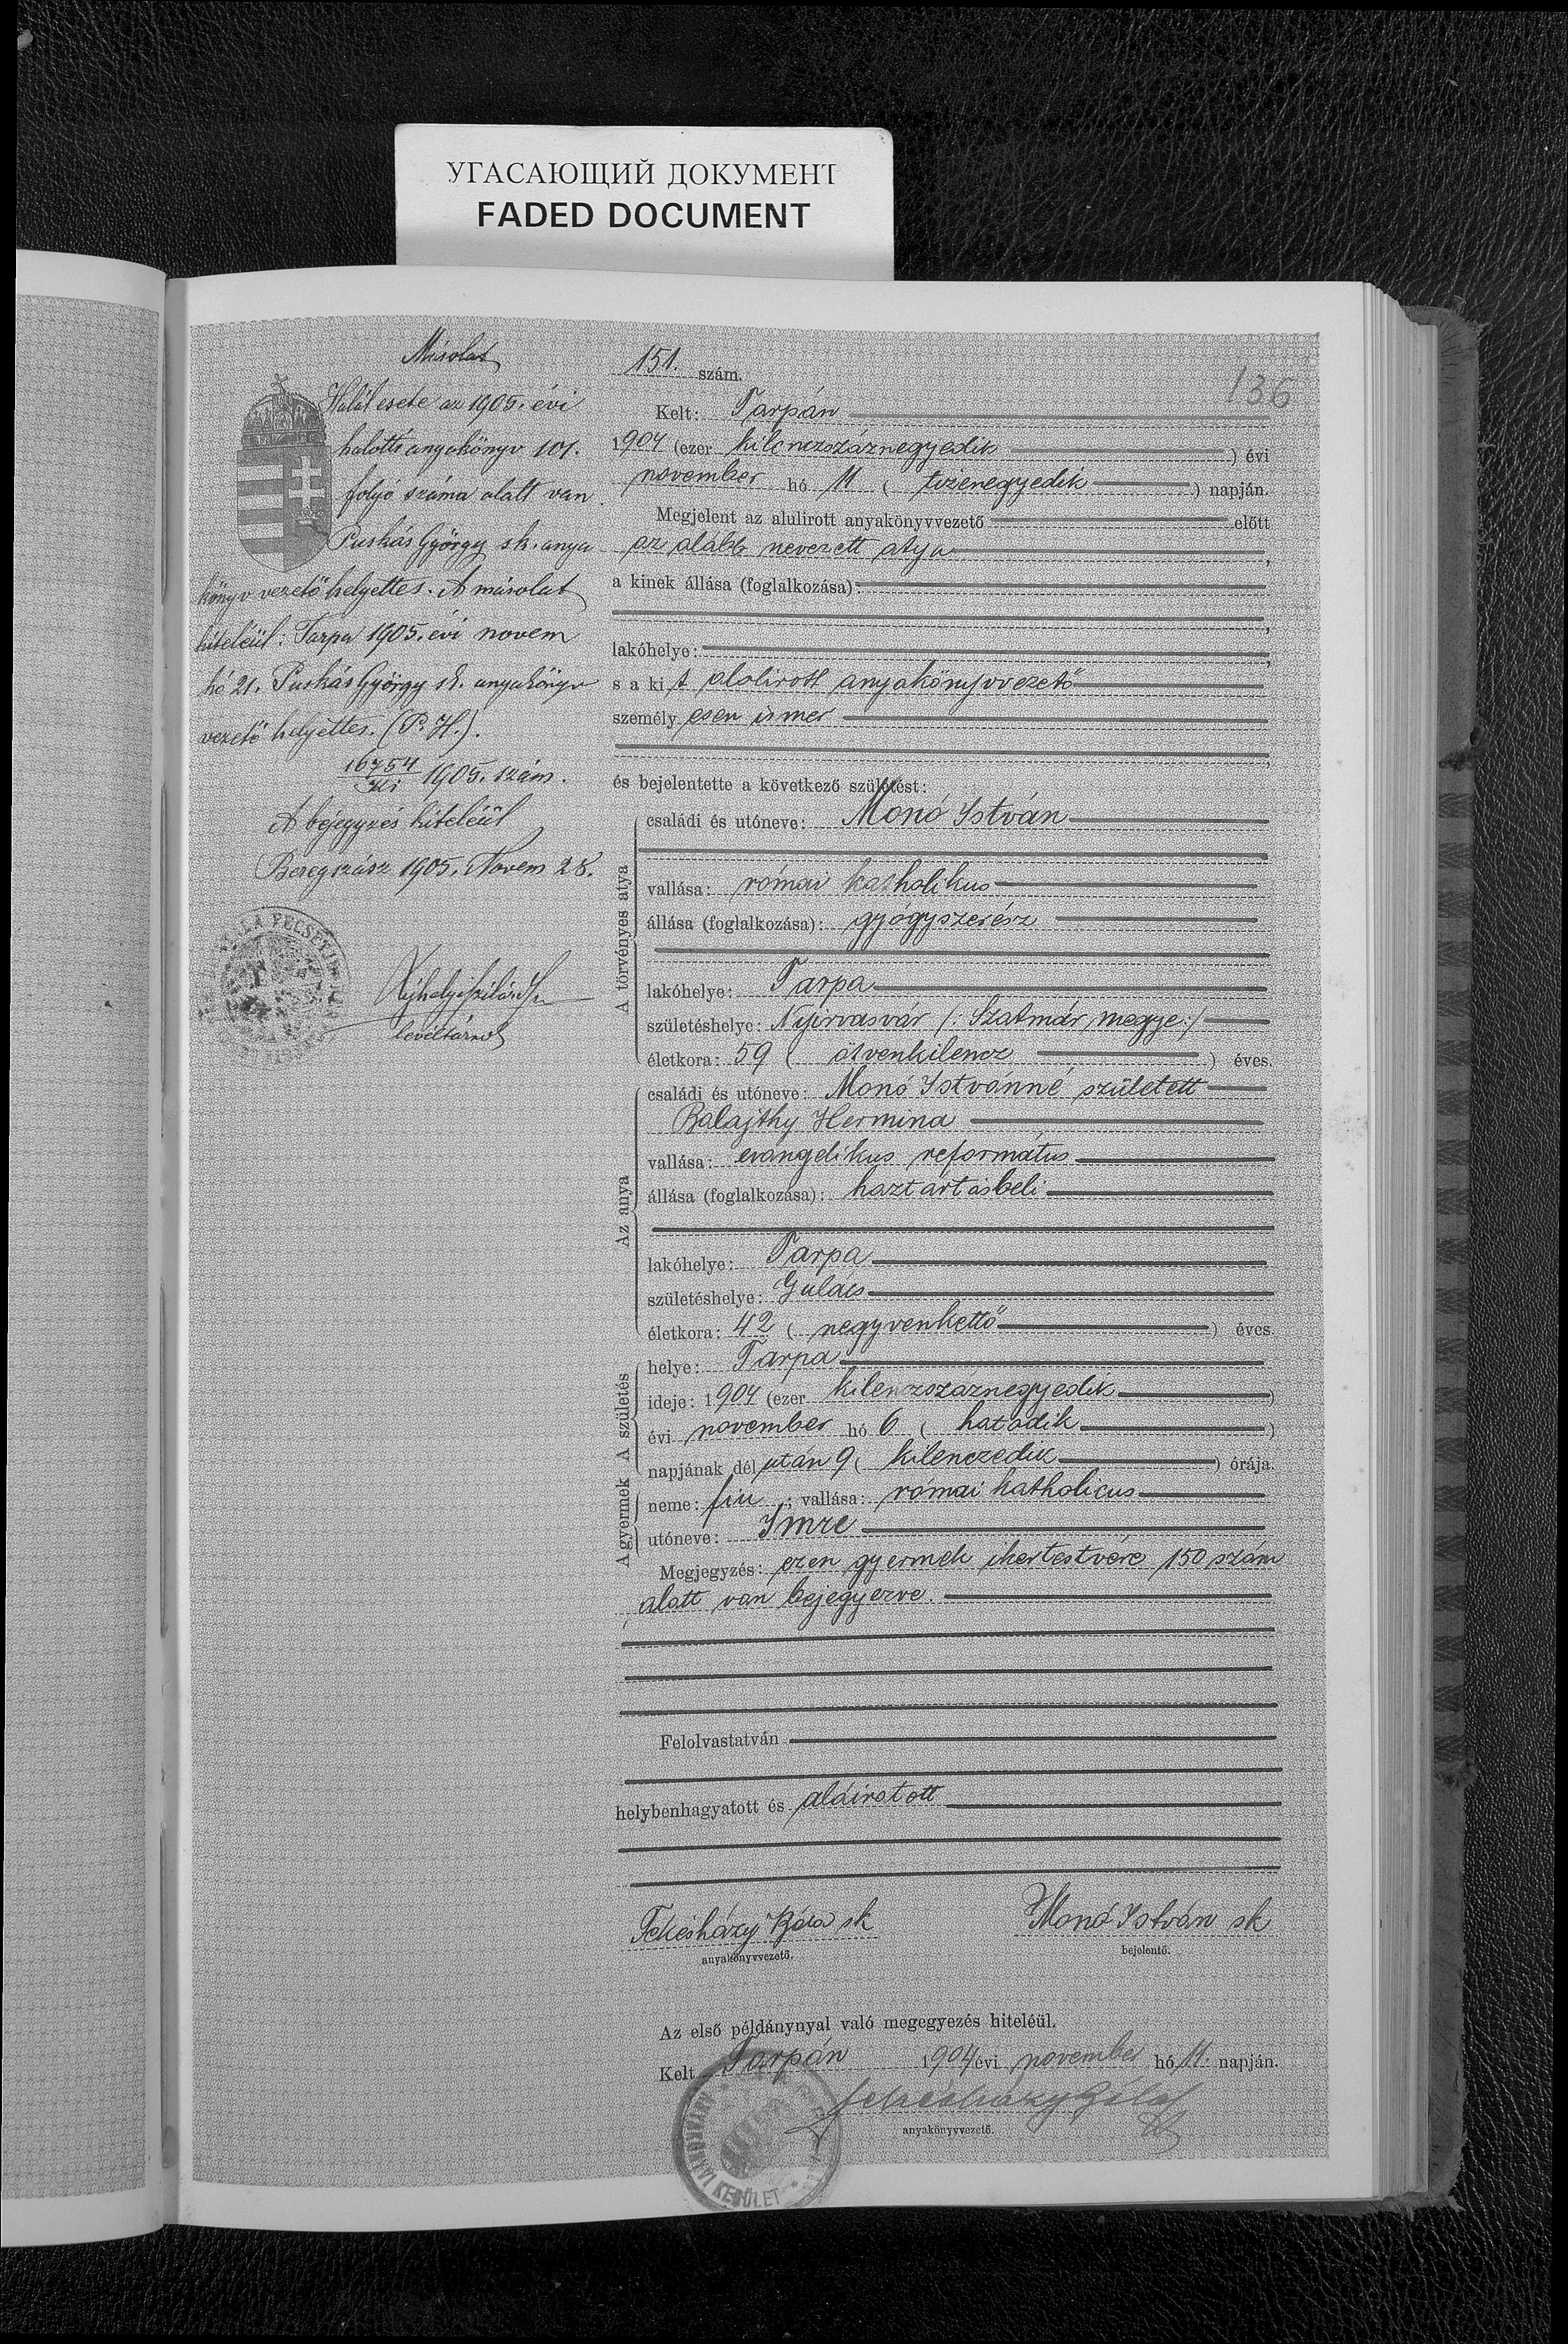 УГАСАЮЩИЙ ДОКУМЕНТ
FADED DOCUMENT
136
Másolat
Halál esete az 1905. évi
halotti anyakönyv 101.
folyó száma alatt van
Puskás György sk. anya
könyvvezető helyettes. A másolat
hiteléül: Tarpa 1905. évi novem
hó 21. Puskás György sk. anyakönyv
vezető helyettes. (P. H.).
16754 1905. szám.
A bejegyzés hiteléül
Beregszász 1905. Novem 28.
levéltárnok
151. szám.
Kelt: Tarpán
1904 (ezer kilenczszáznegyedik ) évi
november hó 11 ( tizenegyedik ) napján.
Megjelent az alulirott anyakönyvvezető előtt
az alább nevezett atya ,
a kinek állása (foglalkozása):
,
lakóhelye: ,
s a ki t alolirott anyakönyvvezető
személy esen ismer
,
és bejelentette a következő születést:
A törvényes atya
családi és utóneve: Monó István
vallása: római katholikus
állása (foglalkozása): gyógyszerész
lakóhelye: Tarpa
születéshelye: Nyirvasvár /: Szatmár megye :/
életkora: 59 ( ötvenkilencz ) éves.
Az anya
családi és utóneve: Monó Istvánné született
Balajthy Hermina
vallása: evangelikus református
állása (foglalkozása): háztartásbeli
lakóhelye: Tarpa
születéshelye: Gulács
életkora: 42 ( negyvenkettő ) éves.
A születés
helye: Tarpa
ideje: 1904 (ezer kilenczszáznegyedik )
évi november hó 6 ( hatodik )
napjának dél után 9 ( kilenczedik ) órája.
A gyermek
neme: fiu ; vallása: római katholicus
utóneve: Imre
Megjegyzés: ezen gyermek ikertestvére 150 szám
alatt van bejegyezve.
Felolvastatván
helybenhagyatott és aláiratott
Fekésházy Béla sk Monó István sk
anyakönyvvezető. bejelentő.
Az első példánynyal való megegyezés hiteléül.
Kelt Tarpán 1904 évi november hó 11. napján.
Fekésházy Béla
anyakönyvvezető.
KERÜLET